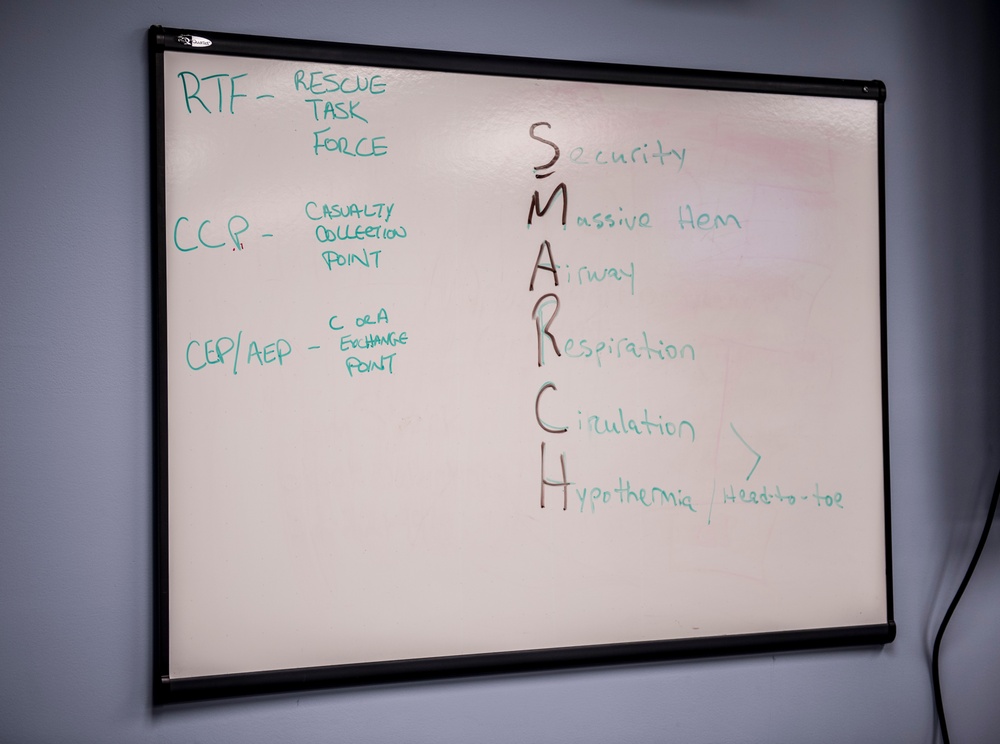 RTF - RESCUE
TASK
FORCE
CCP - CASUALTY
COLLECTION
POINT
CEP/AEP - C OR A
EXCHANGE
POINT
Security
Massive Hem
Airway
Respiration
Cirulation
Hypothermia / Head-to-toe
Quartet